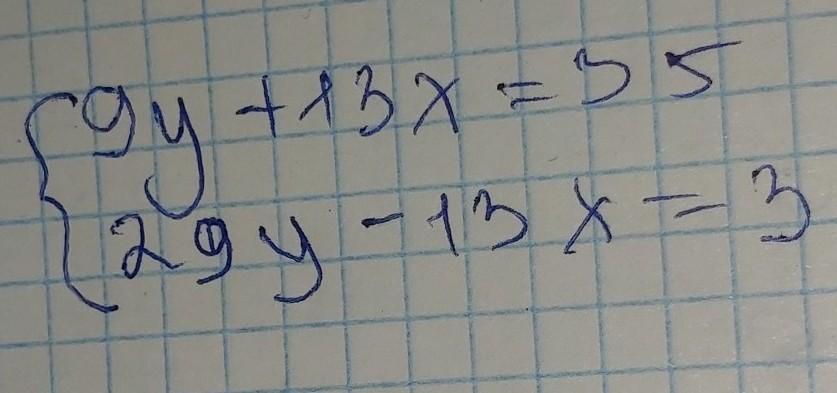 9y + 13x = 35
29y - 13x = 3